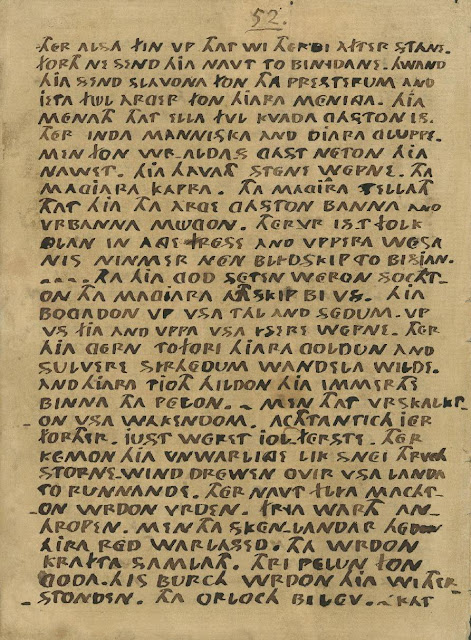 52.
THÉR ALSA FIN VP THAT WI THÉRBI AFTER STANE.
FORTH NE SEND HIA NAVT TO BINYDANE. HWAND
HIA SEND SLAVONA FON THA PRESTERUM AND
IETA FUL ARGER FON HIARA MENINGA. HIA
MENATH THAT ELLA FUL KVADA GASTON IS.
THÉR INDA MANNISKA AND DIARA GLUPPE.
MEN FON WR.ALDAS GAST NETON HIA
NAWET. HIA HAVATH STENE WÉPNE. THA
MAGIARA KAPRA. THA MAGIRA TELLATH
THAT HIA THA ARGE GASTON BANNA AND
VRBANNA MUGON. THÉRVR IS.T FOLK
OLAN IN ANGE FRESE AND VPPERA WÉSA
NIS NIMMER NEN BLIDSKIP TO BISIAN.
---- THA HIA GOD SETEN WERON SOCHT-
ON THA MAGIARA ATHSKIP BI VS. HIA
BOGADON VP VSA TAL AND SÉDUM. VP
VS FIA AND VPPA VSA YSERE WÉPNE. THÉR
HIA GERN TOFORI HIARA GOLDUN AND
SULVERE SYRHÉDUM WANDELA WILDE.
AND HIARA TIOTH HILDON HIA IMMERTHE
BINNA THA PELON. - MEN THAT VRSKALKT-
ON VSA WAKENDOM. ACHTANTICH IER
FORTHER. IUST WERET IOL.FERSTE. THÉR
KEMON HIA VNWARLINGE LIK SNEI THRVCH
STORNE-WIND DREWEN OVIR VSA LANDA
TO RUNNANDE. THÉR NAVT FLYA MACHT-
ON WRDON VRDEN. FRYA WARTH AN-
HROPEN. MEN THA SKÉNLANDAR HÉDE
HIRA RED WARLASED. THA WRDON
KRAFTA SAMLATH. THRI PELUN FON
GODA.HIS BURCH WRDON HIA WITHER-
STONDEN. THA ORLOCH BILEV. - KAT